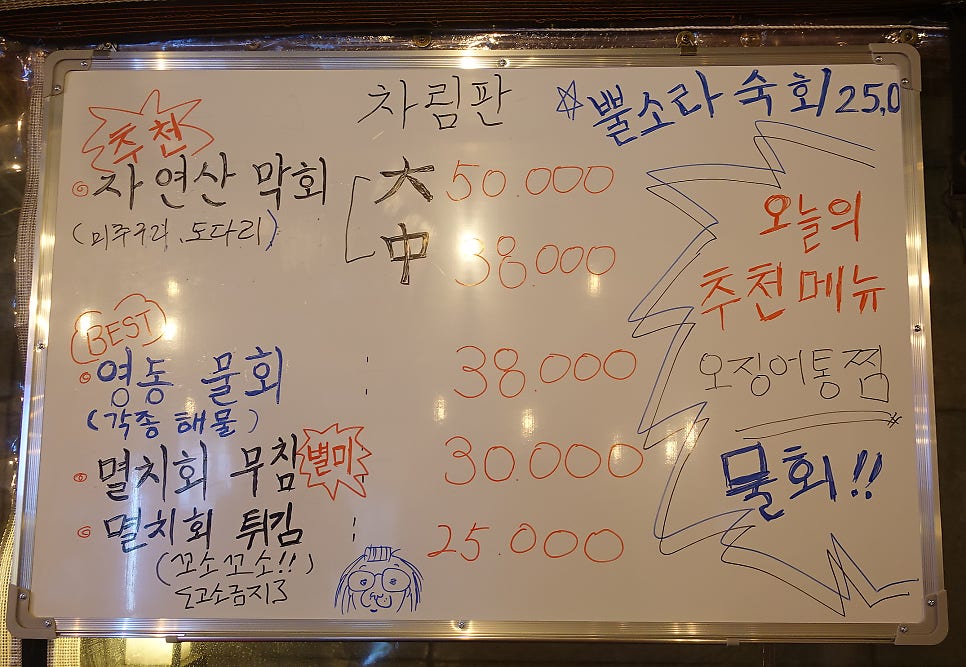 차림판
☆뿔소라 숙회 25,0
추천
자연산 막회 大 50.000
(미주구리, 도다리)
中 38.000
BEST
영동 물회 38.000
(각종 해물)
멸치회 무침 별미 30.000
멸치회 튀김 25.000
(꼬소꼬소!!)
오늘의
추천메뉴
오징어통찜
물회!!